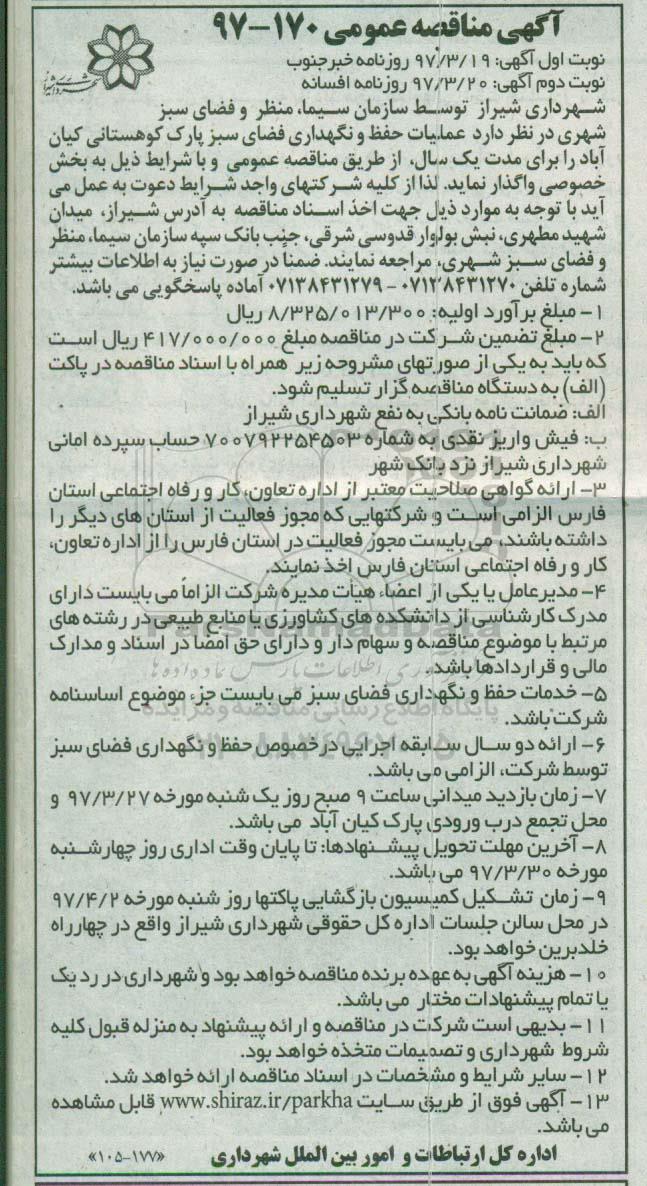 آگهی مناقصه عمومی ۱۷۰-۹۷
نوبت اول آگهی: ۹۷/۳/۱۹ روزنامه خبرجنوب
نوبت دوم آگهی: ۹۷/۳/۲۰ روزنامه افسانه
شهرداری شیراز
شهرداری شیراز توسط سازمان سیما، منظر و فضای سبز
شهری در نظر دارد عملیات حفظ و نگهداری فضای سبز پارک کوهستانی کیان
آباد را برای مدت یک سال، از طریق مناقصه عمومی و با شرایط ذیل به بخش
خصوصی واگذار نماید. لذا از کلیه شرکتهای واجد شرایط دعوت به عمل می
آید با توجه به موارد ذیل جهت اخذ اسناد مناقصه به آدرس شیراز، میدان
شهید مطهری، نبش بولوار قدوسی شرقی، جنب بانک سپه سازمان سیما، منظر
و فضای سبز شهری، مراجعه نمایند. ضمناً در صورت نیاز به اطلاعات بیشتر
شماره تلفن ۰۷۱۳۸۴۳۱۲۷۰ - ۰۷۱۳۸۴۳۱۲۷۹ آماده پاسخگویی می باشد.
۱- مبلغ برآورد اولیه: ۸/۳۲۵/۰۱۳/۳۰۰ ریال
۲- مبلغ تضمین شرکت در مناقصه مبلغ ۴۱۷/۰۰۰/۰۰۰ ریال است
که باید به یکی از صورتهای مشروحه زیر همراه با اسناد مناقصه در پاکت
(الف) به دستگاه مناقصه گزار تسلیم شود.
الف: ضمانت نامه بانکی به نفع شهرداری شیراز
ب: فیش واریز نقدی به شماره ۷۰۰۷۹۲۲۵۴۵۰۳ حساب سپرده امانی
شهرداری شیراز نزد بانک شهر
۳- ارائه گواهی صلاحیت معتبر از اداره تعاون، کار و رفاه اجتماعی استان
فارس الزامی است و شرکتهایی که مجوز فعالیت از استان های دیگر را
داشته باشند، می بایست مجوز فعالیت در استان فارس را از اداره تعاون،
کار و رفاه اجتماعی استان فارس اخذ نمایند.
۴- مدیرعامل یا یکی از اعضاء هیأت مدیره شرکت الزاماً می بایست دارای
مدرک کارشناسی از دانشکده های کشاورزی یا منابع طبیعی در رشته های
مرتبط با موضوع مناقصه و سهام دار و دارای حق امضا در اسناد و مدارک
مالی و قراردادها باشد.
۵- خدمات حفظ و نگهداری فضای سبز می بایست جزء موضوع اساسنامه
شرکت باشد.
۶- ارائه دو سال سابقه اجرایی درخصوص حفظ و نگهداری فضای سبز
توسط شرکت، الزامی می باشد.
۷- زمان بازدید میدانی ساعت ۹ صبح روز یک شنبه مورخه ۹۷/۳/۲۷ و
محل تجمع درب ورودی پارک کیان آباد می باشد.
۸- آخرین مهلت تحویل پیشنهادها: تا پایان وقت اداری روز چهارشنبه
مورخه ۹۷/۳/۳۰ می باشد.
۹- زمان تشکیل کمیسیون بازگشایی پاکتها روز شنبه مورخه ۹۷/۴/۲
در محل سالن جلسات اداره کل حقوقی شهرداری شیراز واقع در چهارراه
خلدبرین خواهد بود.
۱۰- هزینه آگهی به عهده برنده مناقصه خواهد بود و شهرداری در رد یک
یا تمام پیشنهادات مختار می باشد.
۱۱- بدیهی است شرکت در مناقصه و ارائه پیشنهاد به منزله قبول کلیه
شروط شهرداری و تصمیمات متخذه خواهد بود.
۱۲- سایر شرایط و مشخصات در اسناد مناقصه ارائه خواهد شد.
۱۳- آگهی فوق از طریق سایت www.shiraz.ir/parkha قابل مشاهده
می باشد.
اداره کل ارتباطات و امور بین الملل شهرداری «۱۰۵-۱۷۷»
ParsNamadData
پایگاه اطلاع رسانی مناقصه و مزایده